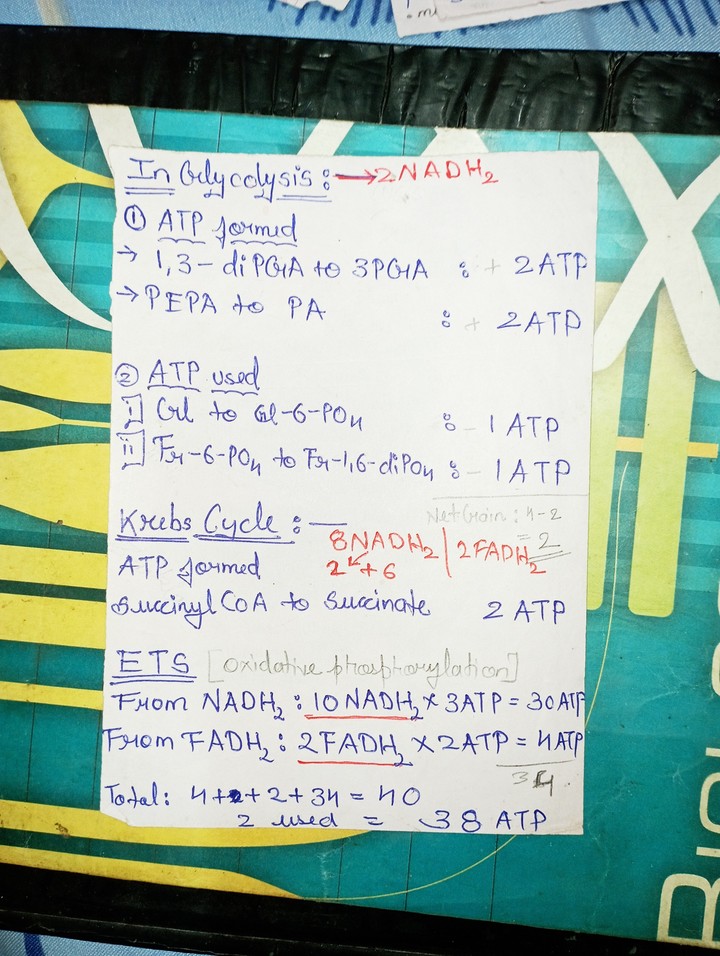 In Glycolysis :→ 2NADH2
① ATP formed
→ 1,3-diPGA to 3PGA : + 2ATP
→ PEPA to PA : + 2ATP
② ATP used
i] Gl to Gl-6-PO4 : - 1 ATP
ii] Fr-6-PO4 to Fr-1,6-diPO4 : - 1ATP
Net Gain : 4-2
= 2
Krebs Cycle : —
8NADH2 | 2FADH2
2 + 6
ATP formed
Succinyl CoA to Succinate 2 ATP
ETS [oxidative phosphorylation]
From NADH2 : 10NADH2 × 3ATP = 30ATP
From FADH2 : 2FADH2 × 2ATP = 4ATP
34
Total : 4+2+34 = 40
2 used = 38 ATP
BIOL